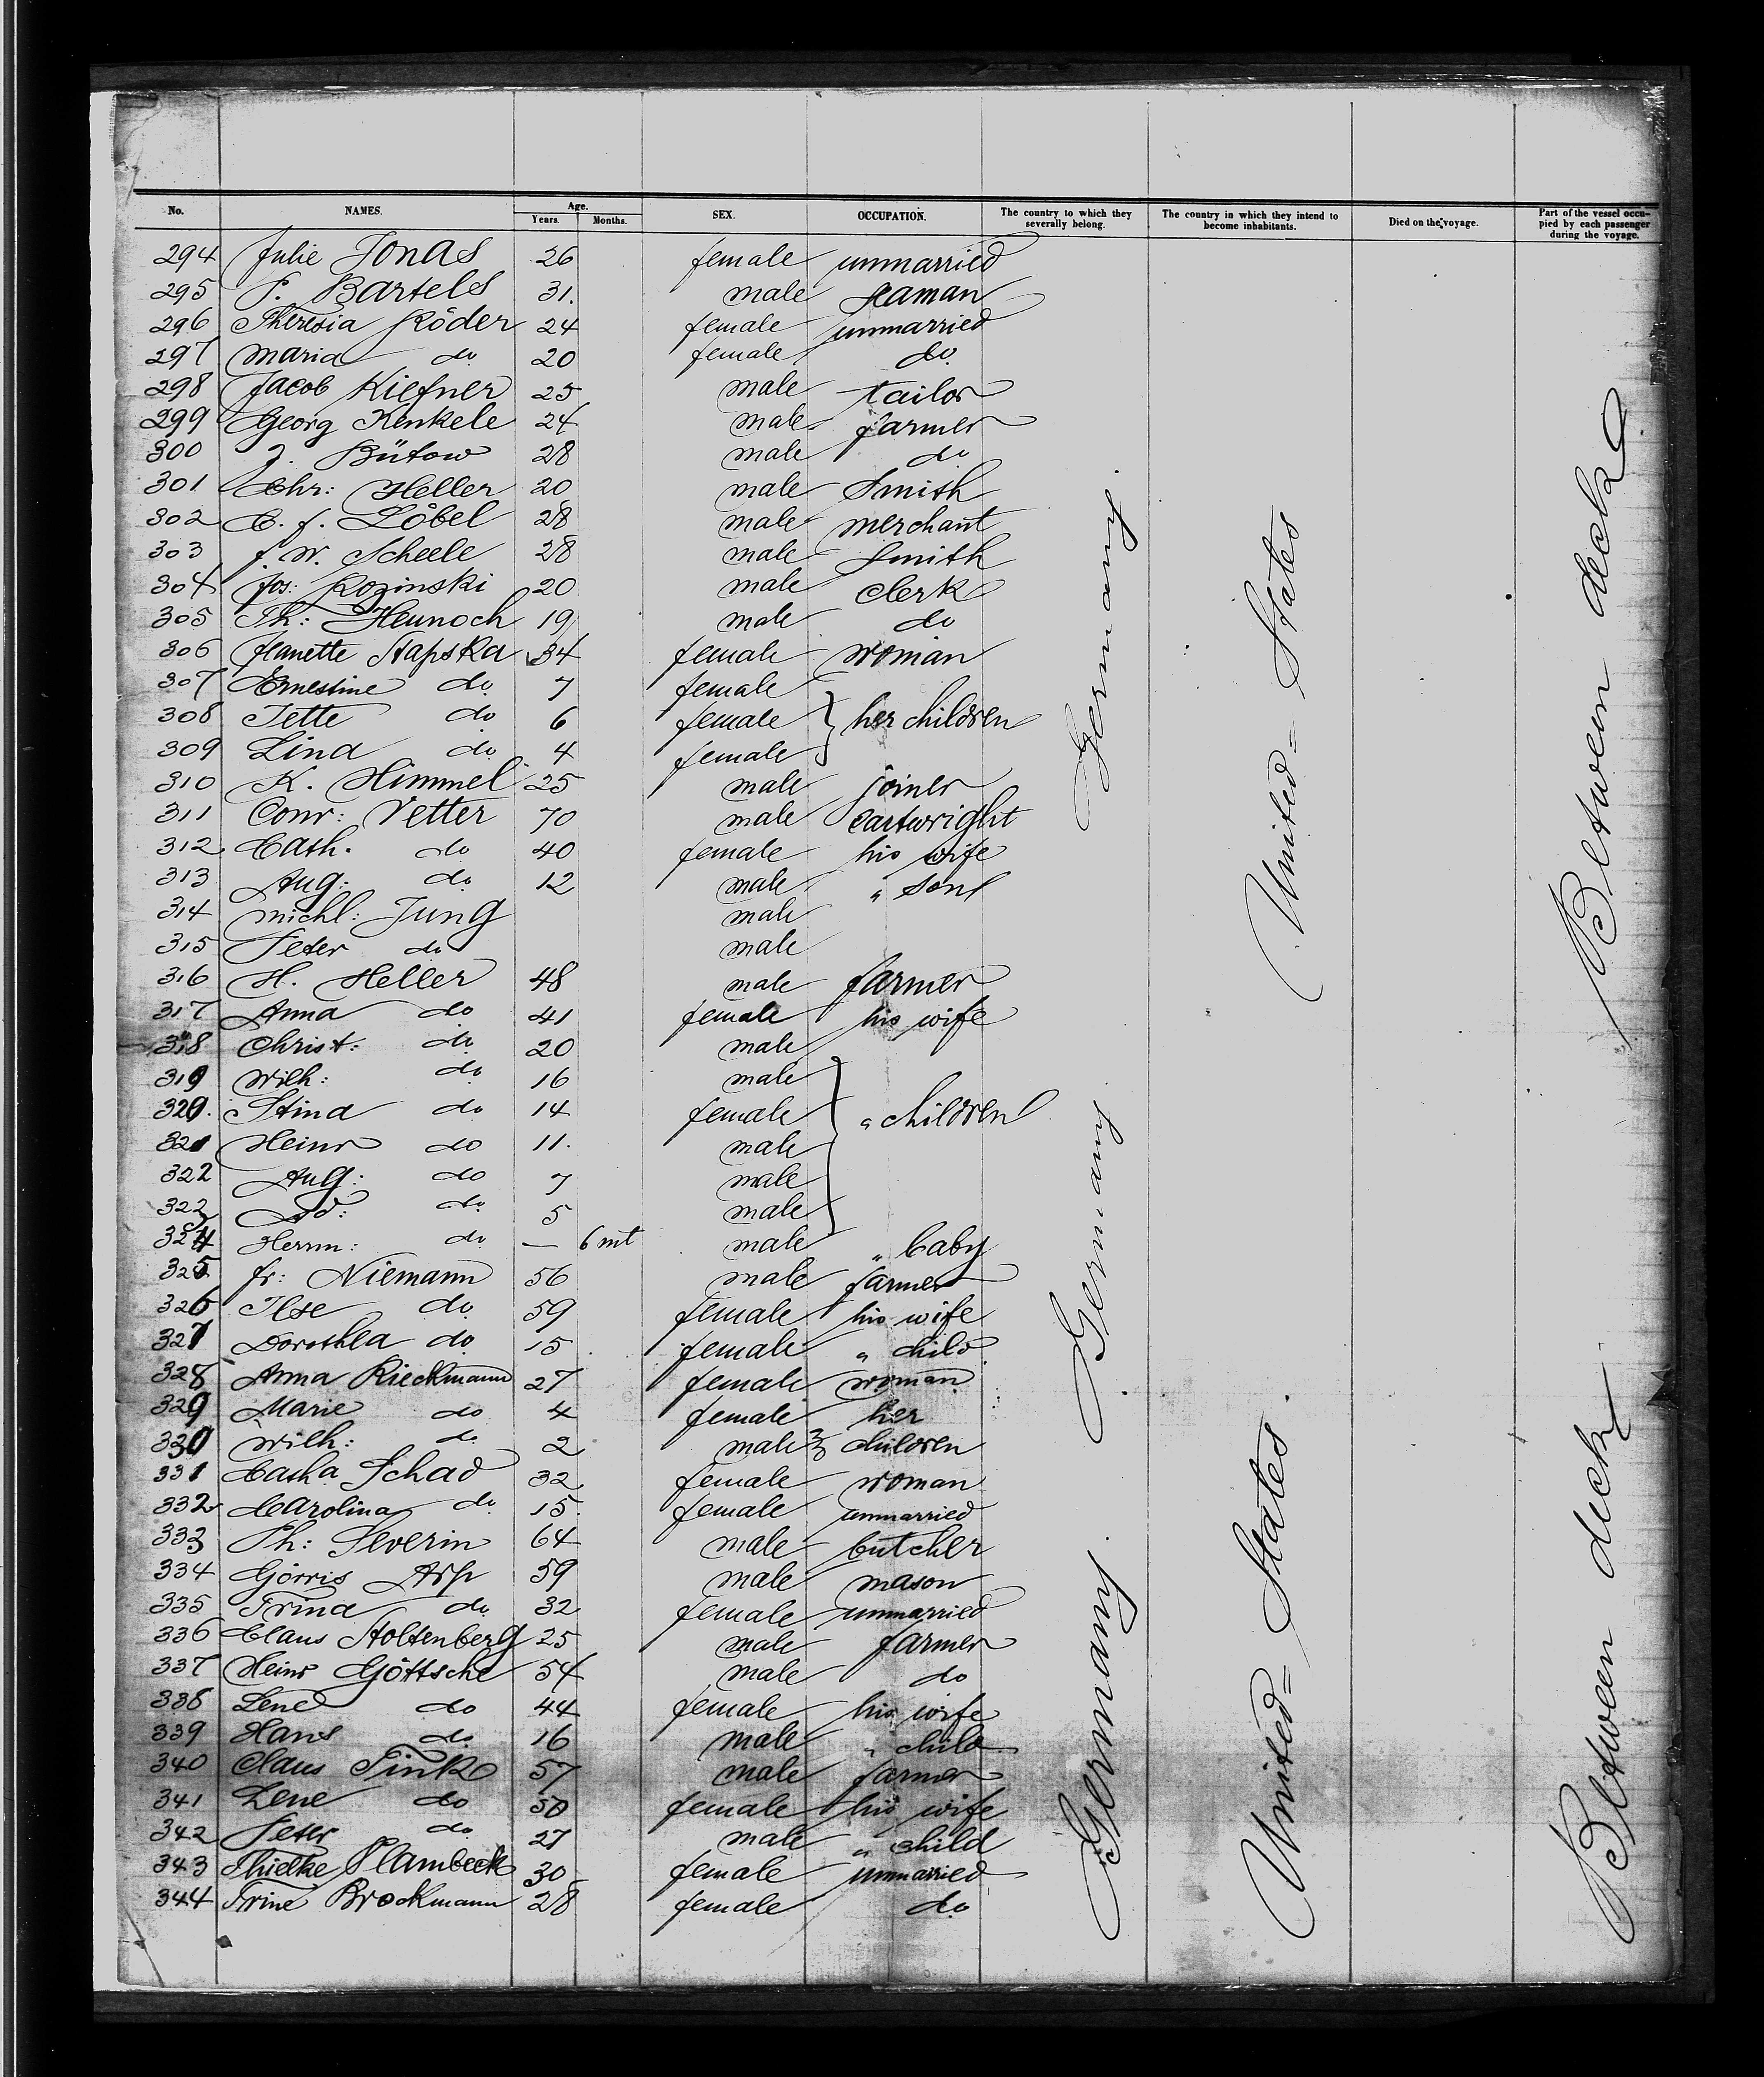 No. NAMES. Age. Years. Months. SEX. OCCUPATION. The country to which they severally belong. The country in which they intend to become inhabitants. Died on the voyage. Part of the vessel occupied by each passenger during the voyage.
294 Julie Jonas 26 female unmarried
295 P. Bartels 31. male seaman
296 Theresia Röder 24 female unmarried
297 Maria do 20 female do.
298 Jacob Kiefner 25 male tailor
299 Georg Kenkele 24 male farmer
300 J. Bütow 28 male do
301 Chr: Heller 20 male Smith
302 C. F. Löbel 28 male merchant
303 F. W. Scheele 28 male Smith
304 Jos: Rozinski 20 male Clerk
305 Th: Heunoch 19 male do
306 Jeanette Stapska 34 female woman
307 Ernestine do. 7 female
308 Jette do 6 female her children
309 Lina do 4 female
310 K. Himmel 25 male joiner
311 Conr: Vetter 70 male cartwright
312 Cath. do 40 female his wife
313 Aug: do 12 male " son
314 Michl: Jung male
315 Peter do male
316 H. Heller 48 male farmer
317 Anna do 41 female his wife
318 Christ: do 20 male
319 Wilh: do 16 male
320. Stina do 14 female " children
321 Heinr do 11. male
322 Aug: do 7 male
323 Ad: do. 5 male
324 Herrm: do — 6 mt male " baby
325 Fr: Niemann 56 male farmer
326 Ilse do. 59 female his wife
327 Dorothea do. 15 female " child
328 Anna Rieckmann 27 female woman
329 Marie do 4 female her
330 Wilh: do 2 male children
331 Catha Schad 32 female woman
332 Carolina do 15. female unmarried
333 Ph: Severin 64 male butcher
334 Görris Arp 59 male mason
335 Trina do. 32 female unmarried
336 Claus Stoltenberg 25 male farmer
337 Heinr Göttsche 54 male do
338 Lene do 44 female his wife
339 Hans do. 16 male " child
340 Claus Fink 57 male farmer
341 Lene do 50 female his wife
342 Peter do. 27 male " child
343 Thielke Plambeck 30 female unmarried
344 Trine Brockmann 28 female do
Germany.
Germany
Germany.
United= States
United= States.
Between deck
Between deck